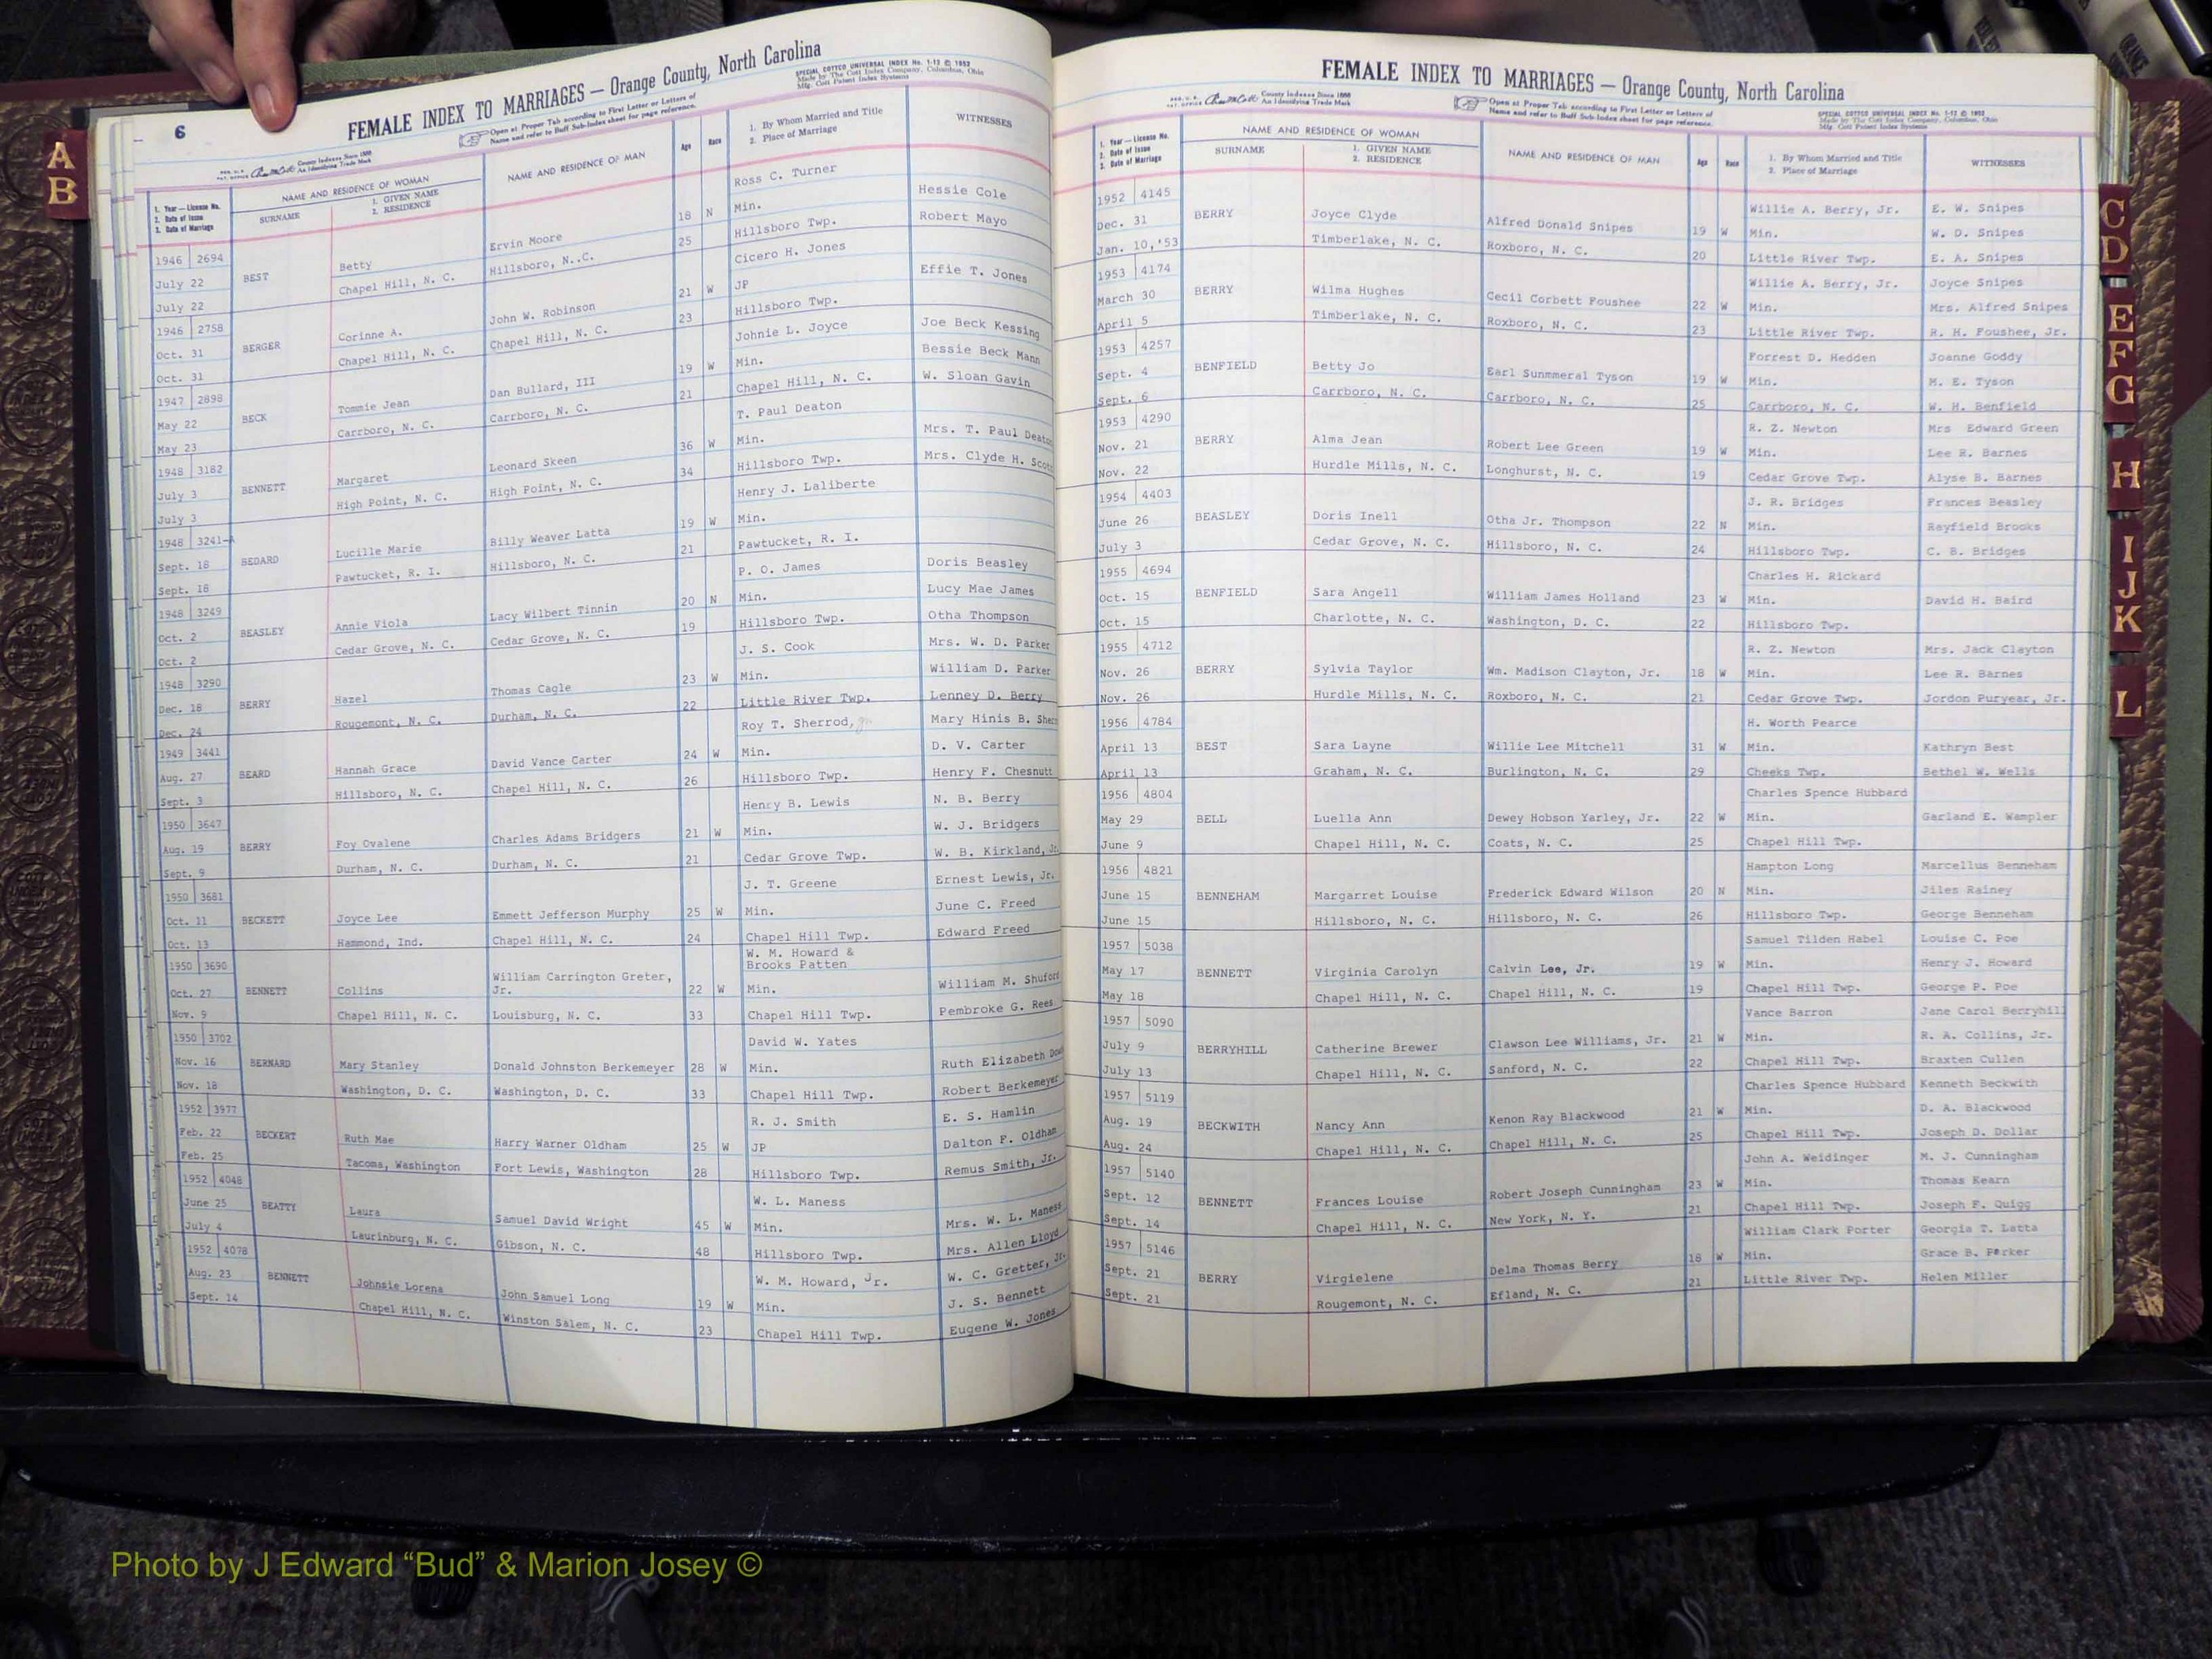 6
FEMALE INDEX TO MARRIAGES — Orange County, North Carolina
SPECIAL COTTCO UNIVERSAL INDEX No. 1-12 © 1952
Made by The Cott Index Company, Columbus, Ohio
Mfg. Cott Patent Index Systems
County Indexes Since 1888
An Identifying Trade Mark
Open at Proper Tab according to First Letter or Letters of
Name and refer to Buff Sub-Index sheet for page reference.
1. Year — License No.
2. Date of Issue
3. Date of Marriage
NAME AND RESIDENCE OF WOMAN
SURNAME
1. GIVEN NAME
2. RESIDENCE
NAME AND RESIDENCE OF MAN
Age
Race
1. By Whom Married and Title
2. Place of Marriage
WITNESSES
1946 2694 Ross C. Turner Hessie Cole
July 22 BEST Betty Ervin Moore 18 N Min. Robert Mayo
July 22 Chapel Hill, N. C. Hillsboro, N..C. 25 Hillsboro Twp.
1946 2758 Cicero H. Jones Effie T. Jones
Oct. 31 BERGER Corinne A. John W. Robinson 21 W JP
Oct. 31 Chapel Hill, N. C. Chapel Hill, N. C. 23 Hillsboro Twp.
1947 2898 Johnie L. Joyce Joe Beck Kessing
May 22 BECK Tommie Jean Dan Bullard, III 19 W Min. Bessie Beck Mann
May 23 Carrboro, N. C. Carrboro, N. C. 21 Chapel Hill, N. C. W. Sloan Gavin
1948 3182 T. Paul Deaton Mrs. T. Paul Deaton
July 3 BENNETT Margaret Leonard Skeen 36 W Min. Mrs. Clyde H.
July 3 High Point, N. C. High Point, N. C. 34 Hillsboro Twp.
1948 3241-A Henry J. Laliberte
Sept. 18 BEDARD Lucille Marie Billy Weaver Latta 19 W Min.
Sept. 18 Pawtucket, R. I. Hillsboro, N. C. 21 Pawtucket, R. I.
1948 3249 P. O. James Doris Beasley
Oct. 2 BEASLEY Annie Viola Lacy Wilbert Tinnin 20 N Min. Lucy Mae James
Oct. 2 Cedar Grove, N. C. Cedar Grove, N. C. 19 Hillsboro Twp. Otha Thompson
1948 3290 J. S. Cook Mrs. W. D. Parker
Dec. 18 BERRY Hazel Thomas Cagle 23 W Min. William D. Parker
Dec. 24 Rougemont, N. C. Durham, N. C. 22 Little River Twp. Lenney D. Berry
1949 3441 Roy T. Sherrod, Jr. Mary Hinis B.
Aug. 27 BEARD Hannah Grace David Vance Carter 24 W Min. D. V. Carter
Sept. 3 Hillsboro, N. C. Chapel Hill, N. C. 26 Hillsboro Twp. Henry F. Chesnutt
1950 3647 Henry B. Lewis N. B. Berry
Aug. 19 BERRY Foy Ovalene Charles Adams Bridgers 21 W Min. W. J. Bridgers
Sept. 9 Durham, N. C. Durham, N. C. 21 Cedar Grove Twp. W. B. Kirkland, Jr.
1950 3681 J. T. Greene Ernest Lewis, Jr.
Oct. 11 BECKETT Joyce Lee Emmett Jefferson Murphy 25 W Min. June C. Freed
Oct. 13 Hammond, Ind. Chapel Hill, N. C. 24 Chapel Hill Twp. Edward Freed
1950 3690 W. M. Howard & Brooks Patten
Oct. 27 BENNETT Collins William Carrington Greter, Jr. 22 W Min. William M. Shuford
Nov. 9 Chapel Hill, N. C. Louisburg, N. C. 33 Chapel Hill Twp. Pembroke G. Rees
1950 3702 David W. Yates
Nov. 16 BERNARD Mary Stanley Donald Johnston Berkemeyer 28 W Min. Ruth Elizabeth
Nov. 18 Washington, D. C. Washington, D. C. 33 Chapel Hill Twp. Robert Berkemeyer
1952 3977 R. J. Smith E. S. Hamlin
Feb. 22 BECKERT Ruth Mae Harry Warner Oldham 25 W JP Dalton F. Oldham
Feb. 25 Tacoma, Washington Fort Lewis, Washington 28 Hillsboro Twp. Remus Smith, Jr.
1952 4048 W. L. Maness
June 25 BEATTY Laura Samuel David Wright 45 W Min. Mrs. W. L. Maness
July 4 Laurinburg, N. C. Gibson, N. C. 48 Hillsboro Twp. Mrs. Allen Lloyd
1952 4078 W. M. Howard, Jr. W. C. Gretter, Jr.
Aug. 23 BENNETT Johnsie Lorena John Samuel Long 19 W Min. J. S. Bennett
Sept. 14 Chapel Hill, N. C. Winston Salem, N. C. 23 Chapel Hill Twp. Eugene W. Jones
FEMALE INDEX TO MARRIAGES — Orange County, North Carolina
SPECIAL COTTCO UNIVERSAL INDEX No. 1-12 © 1952
Made by The Cott Index Company, Columbus, Ohio
Mfg. Cott Patent Index Systems
County Indexes Since 1888
An Identifying Trade Mark
Open at Proper Tab according to First Letter or Letters of
Name and refer to Buff Sub-Index sheet for page reference.
1. Year — License No.
2. Date of Issue
3. Date of Marriage
NAME AND RESIDENCE OF WOMAN
SURNAME
1. GIVEN NAME
2. RESIDENCE
NAME AND RESIDENCE OF MAN
Age
Race
1. By Whom Married and Title
2. Place of Marriage
WITNESSES
1952 4145 Willie A. Berry, Jr. E. W. Snipes
Dec. 31 BERRY Joyce Clyde Alfred Donald Snipes 19 W Min. W. D. Snipes
Jan. 10,'53 Timberlake, N. C. Roxboro, N. C. 20 Little River Twp. E. A. Snipes
1953 4174 Willie A. Berry, Jr. Joyce Snipes
March 30 BERRY Wilma Hughes Cecil Corbett Foushee 22 W Min. Mrs. Alfred Snipes
April 5 Timberlake, N. C. Roxboro, N. C. 23 Little River Twp. R. H. Foushee, Jr.
1953 4257 Forrest D. Hedden Joanne Goddy
Sept. 4 BENFIELD Betty Jo Earl Sunmmeral Tyson 19 W Min. M. E. Tyson
Sept. 6 Carrboro, N. C. Carrboro, N. C. 25 Carrboro, N. C. W. H. Benfield
1953 4290 R. Z. Newton Mrs Edward Green
Nov. 21 BERRY Alma Jean Robert Lee Green 19 W Min. Lee R. Barnes
Nov. 22 Hurdle Mills, N. C. Longhurst, N. C. 19 Cedar Grove Twp. Alyse B. Barnes
1954 4403 J. R. Bridges Frances Beasley
June 26 BEASLEY Doris Inell Otha Jr. Thompson 22 N Min. Rayfield Brooks
July 3 Cedar Grove, N. C. Hillsboro, N. C. 24 Hillsboro Twp. C. B. Bridges
1955 4694 Charles H. Rickard
Oct. 15 BENFIELD Sara Angell William James Holland 23 W Min. David H. Baird
Oct. 15 Charlotte, N. C. Washington, D. C. 22 Hillsboro Twp.
1955 4712 R. Z. Newton Mrs. Jack Clayton
Nov. 26 BERRY Sylvia Taylor Wm. Madison Clayton, Jr. 18 W Min. Lee R. Barnes
Nov. 26 Hurdle Mills, N. C. Roxboro, N. C. 21 Cedar Grove Twp. Jordon Puryear, Jr.
1956 4784 H. Worth Pearce
April 13 BEST Sara Layne Willie Lee Mitchell 31 W Min. Kathryn Best
April 13 Graham, N. C. Burlington, N. C. 29 Cheeks Twp. Bethel W. Wells
1956 4804 Charles Spence Hubbard
May 29 BELL Luella Ann Dewey Hobson Yarley, Jr. 22 W Min. Garland E. Wampler
June 9 Chapel Hill, N. C. Coats, N. C. 25 Chapel Hill Twp.
1956 4821 Hampton Long Marcellus Benneham
June 15 BENNEHAM Margarret Louise Frederick Edward Wilson 20 N Min. Jiles Rainey
June 15 Hillsboro, N. C. Hillsboro, N. C. 26 Hillsboro Twp. George Benneham
1957 5038 Samuel Tilden Habel Louise C. Poe
May 17 BENNETT Virginia Carolyn Calvin Lee, Jr. 19 W Min. Henry J. Howard
May 18 Chapel Hill, N. C. Chapel Hill, N. C. 19 Chapel Hill Twp. George P. Poe
1957 5090 Vance Barron Jane Carol Berryhill
July 9 BERRYHILL Catherine Brewer Clawson Lee Williams, Jr. 21 W Min. R. A. Collins, Jr.
July 13 Chapel Hill, N. C. Sanford, N. C. 22 Chapel Hill Twp. Braxten Cullen
1957 5119 Charles Spence Hubbard Kenneth Beckwith
Aug. 19 BECKWITH Nancy Ann Kenon Ray Blackwood 21 W Min. D. A. Blackwood
Aug. 24 Chapel Hill, N. C. Chapel Hill, N. C. 25 Chapel Hill Twp. Joseph D. Dollar
1957 5140 John A. Weidinger M. J. Cunningham
Sept. 12 BENNETT Frances Louise Robert Joseph Cunningham 23 W Min. Thomas Kearn
Sept. 14 Chapel Hill, N. C. New York, N. Y. 21 Chapel Hill Twp. Joseph F. Quigg
1957 5146 William Clark Porter Georgia T. Latta
Sept. 21 BERRY Virgielene Delma Thomas Berry 18 W Min. Grace B. Parker
Sept. 21 Rougemont, N. C. Efland, N. C. 21 Little River Twp. Helen Miller
A
B
C
D
E
F
G
H
I
J
K
L
Photo by J Edward “Bud” & Marion Josey ©